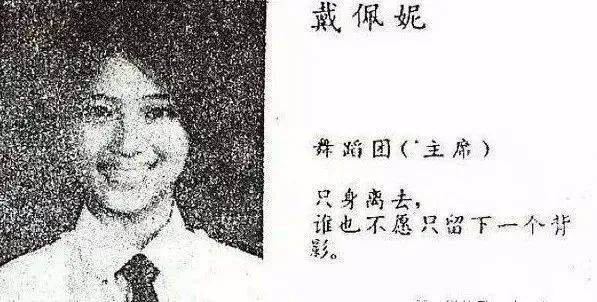 戴佩妮
舞蹈团(主席)
只身离去，
谁也不愿只留下一个背
影。